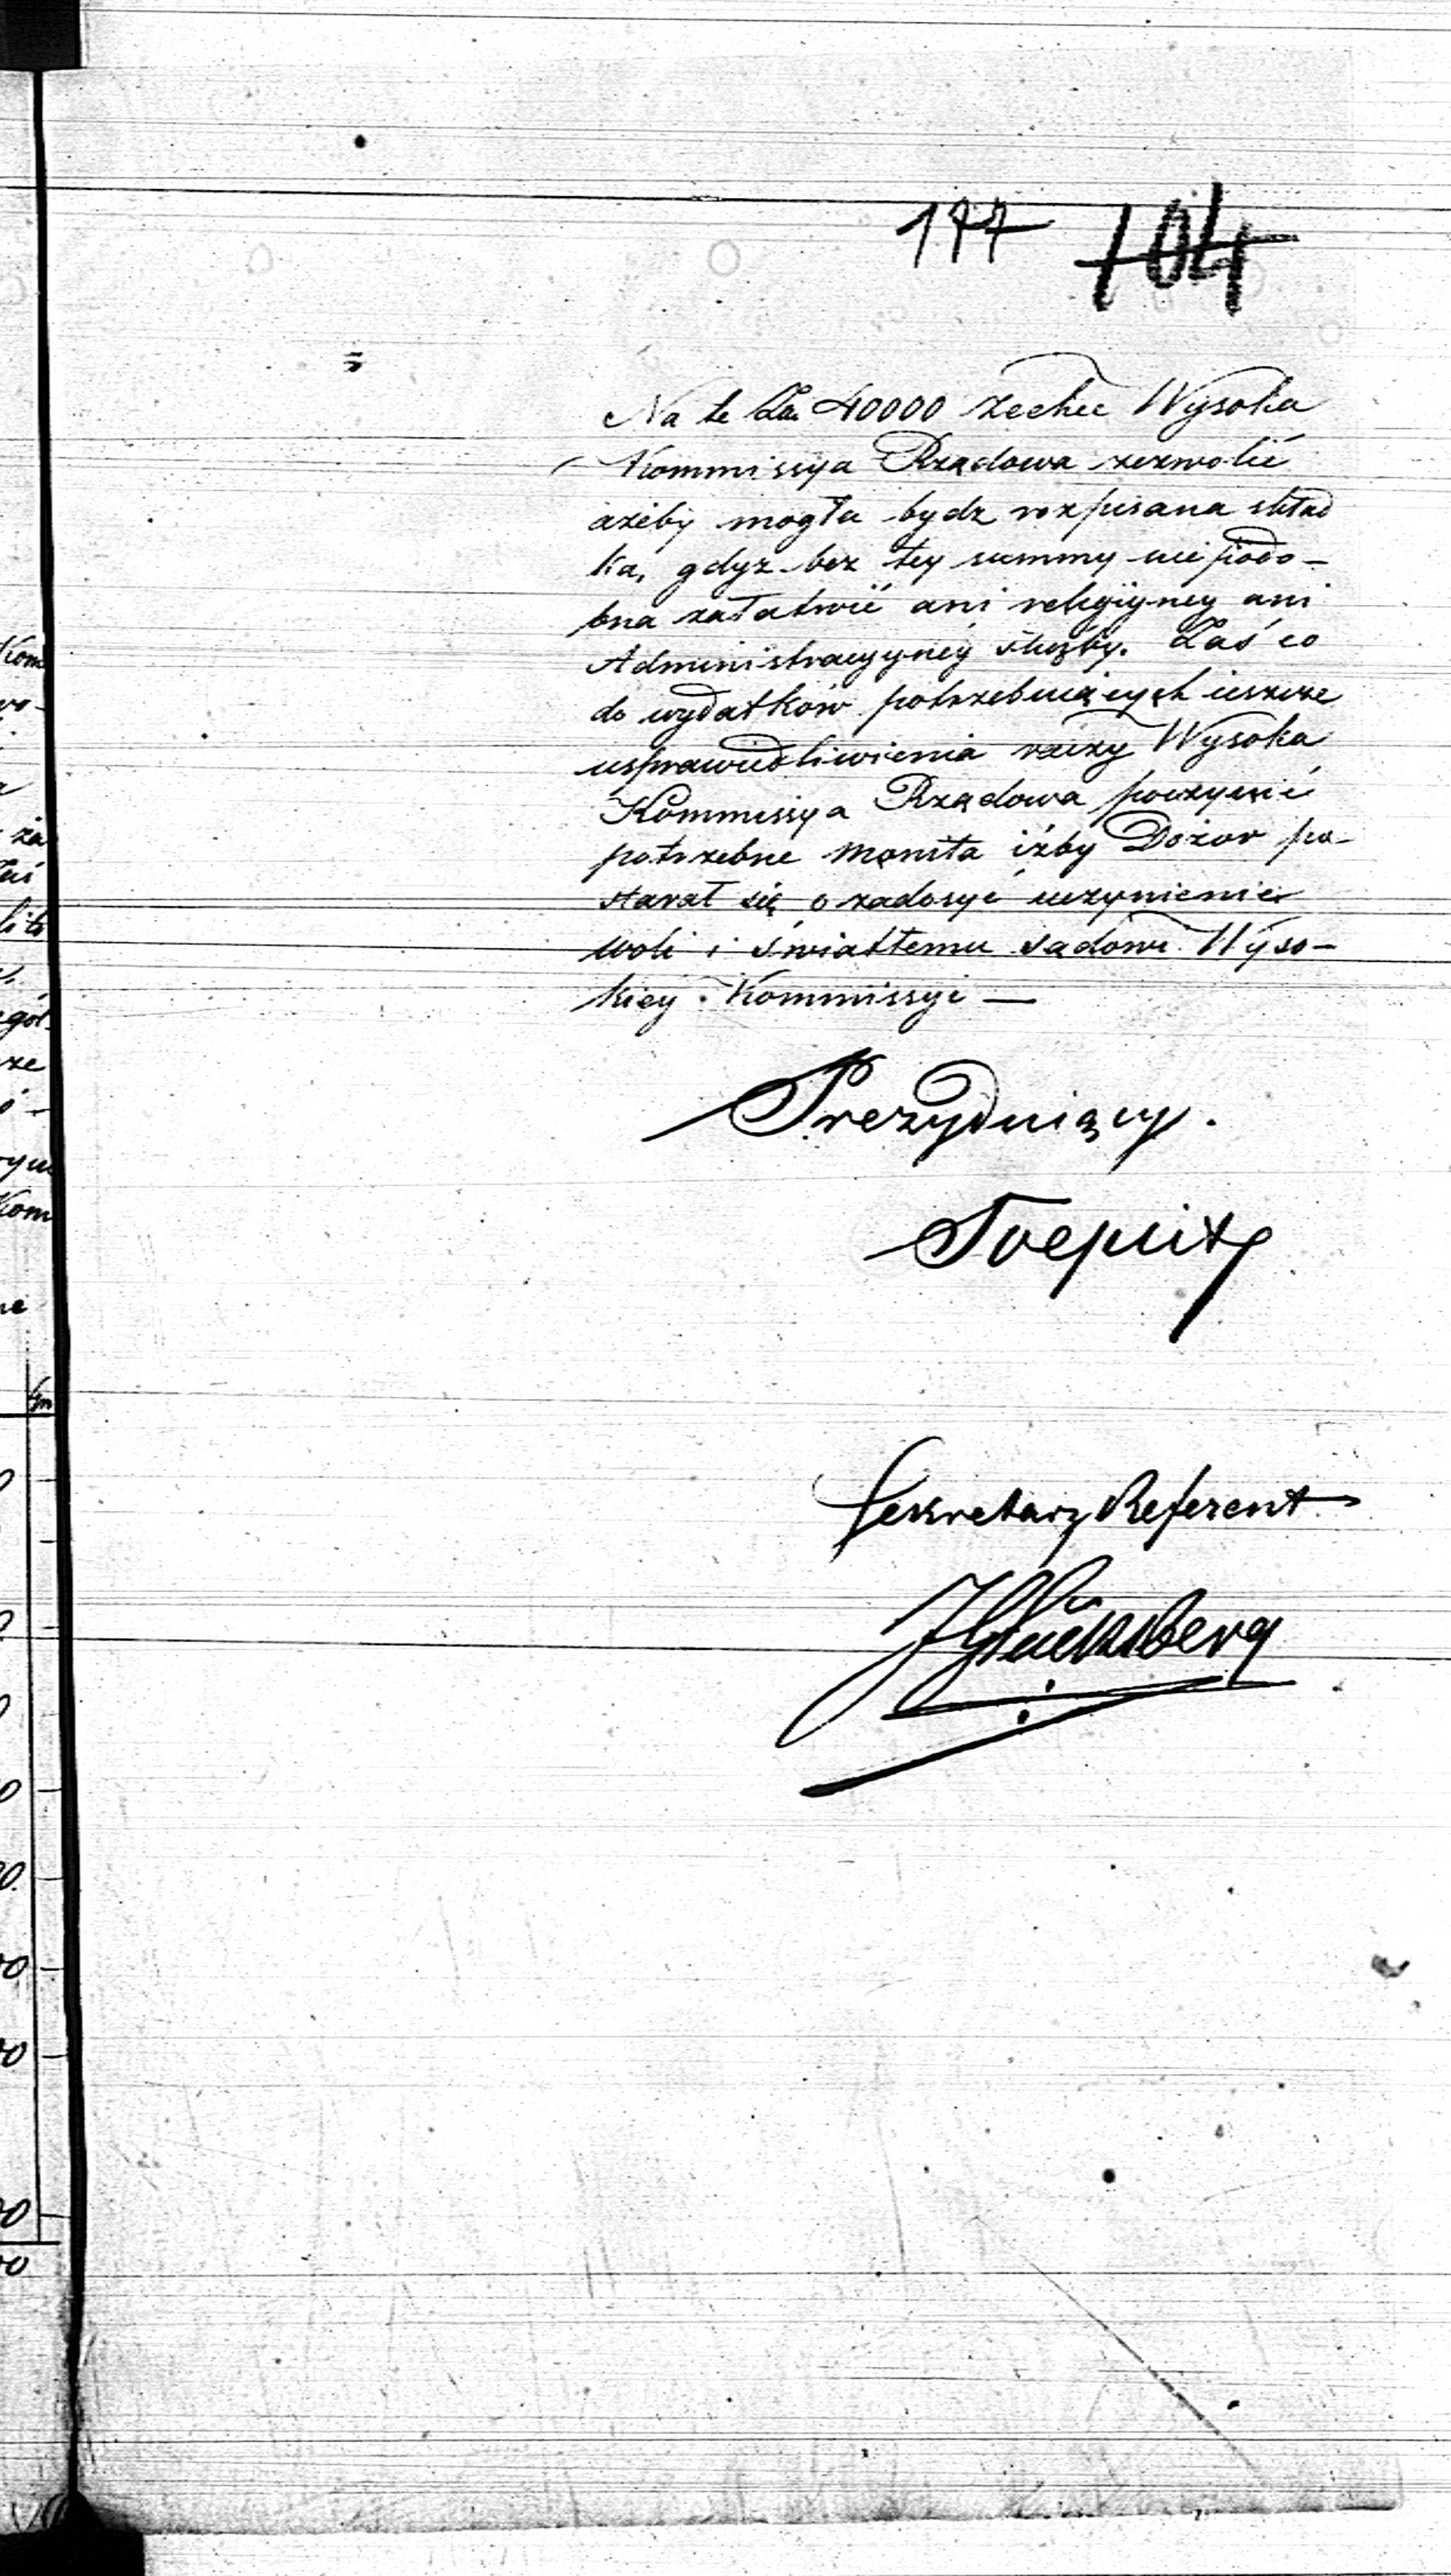 177 104
Na te Zła 40000 zechce Wysoka
Kommissya Rządowa zezwolić
ażeby mogła bydz rozpisana skład
ka, gdyz bez tey summy niepodo-
bna załatwić ani religiyney ani
Administracyyney służby. Zaś co
do wydatków potrzebuiących ieszcze
usprawiedliwienia raczy Wysoka
Kommissya Rządowa poczynić
potrzebne monita iżby Dozor po-
starał się o zadosyć uczynienie
woli i światłemu sądowi Wyso-
kiey Kommissyi —
Prezyduiący.
Toeplitz
Sekretarz Referent
J Glücksberg